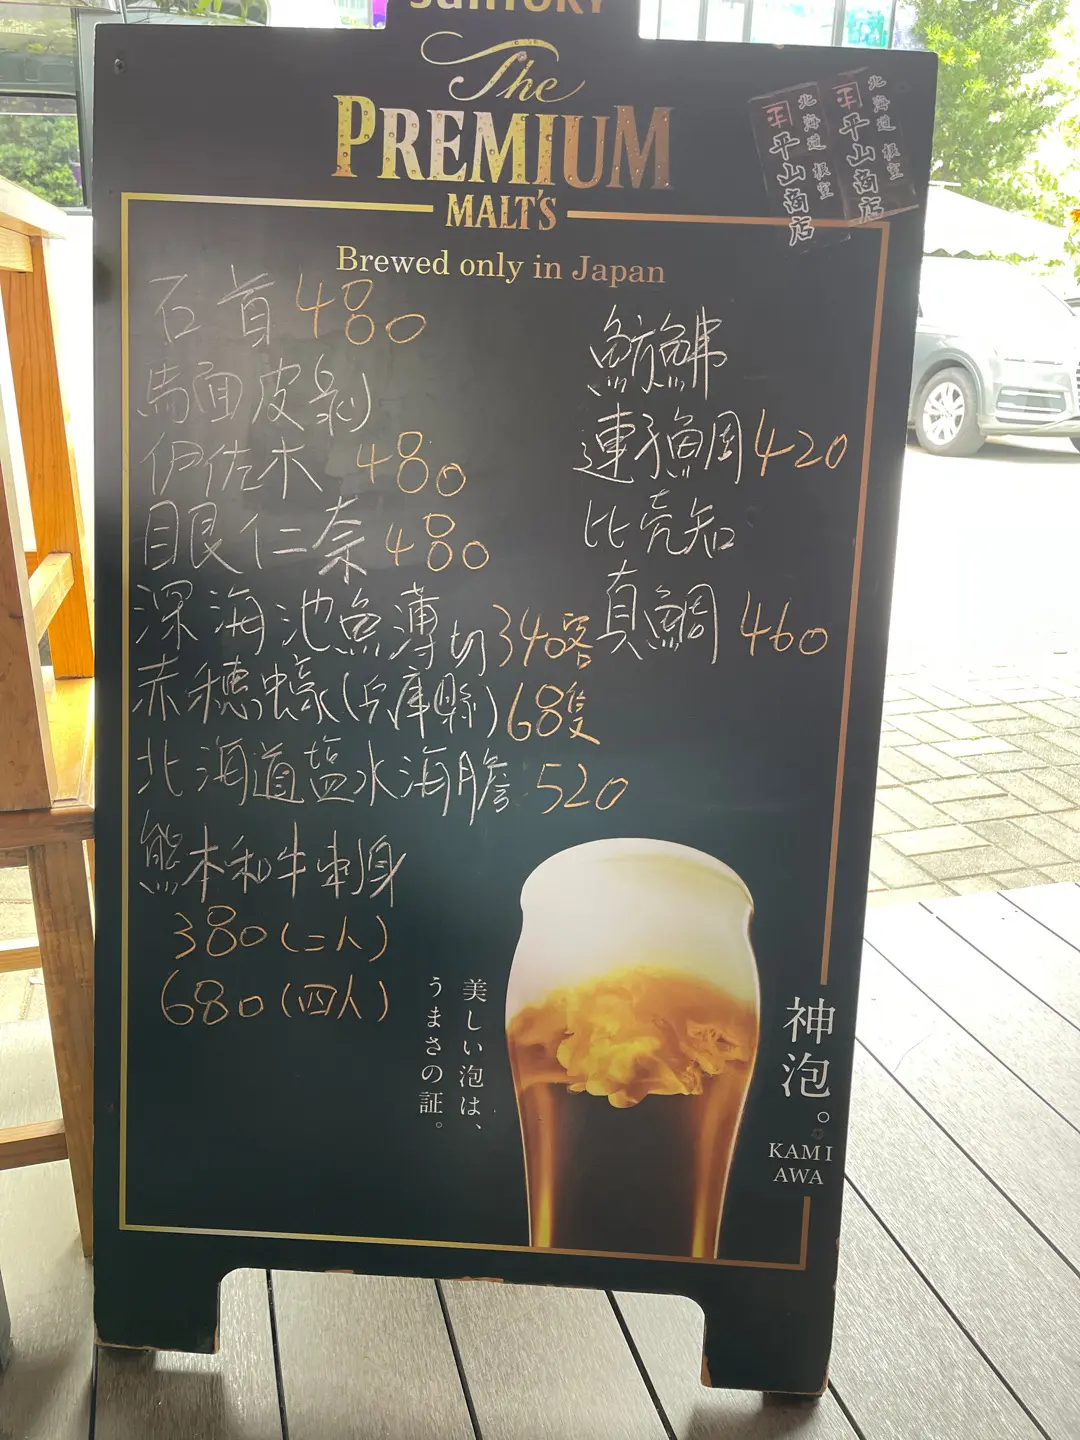 SUNTORY
The
PREMIUM
MALT'S
Brewed only in Japan
北海道 根室
平山商店
北海道 根室
平山商店
石貢 480
馬面皮剝
伊佐木 480
目眼仁奈 480
深海池魚薄切 340客
赤穗蠔(兵庫縣) 68隻
北海道塩水海膽 520
熊本和牛刺身
380(二人)
680(四人)
魴鮄
連子鯛 420
比売知
真鯛 460
美しい泡は、
うまさの証。
神泡。
KAMI
AWA